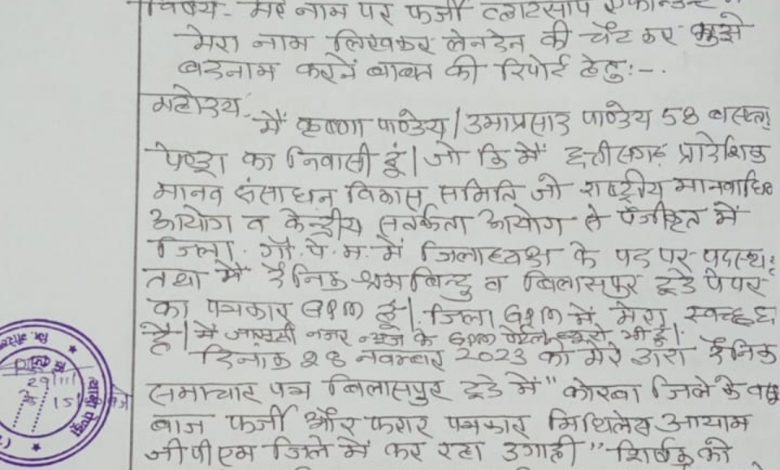 विषय- मेरे नाम पर फर्जी व्हाटसाप
मेरा नाम लिखकर लेनदेन की चैट कर मुझे
बदनाम करने बाबत की रिपोर्ट हेतु:-.
महोदय,
मैं कृष्णा पाण्डेय / उमाप्रसाद पाण्डेय 58
पेण्ड्रा का निवासी हूं। जो कि मैं छत्तीसगढ़ प्रादेशिक
मानव संसाधन विकास समिति जो राष्ट्रीय मानवाधि
आयोग व केन्द्रीय सतर्कता आयोग से पंजीकृत में
जिला. गौ. पे. म. में जिलाध्यक्ष के पद पर पदस्थ
तथा मैं दैनिक श्रमबिन्दु व बिलासपुर टूडे पेपर
का पत्रकार GPM हूं। जिला GPM में मेरा स्वच्छ
है। मैं न्यूज के GPM भी हूं।
दिनांक 28 नवम्बर 2023 को मेरे द्वारा दैनिक
समाचार पत्र बिलासपुर टूडे में "कोरबा जिले के
बाज फर्जी और फरार पत्रकार मिथिलेश आयाम
जीपीएम जिले में कर रहा उगाही" शिर्षक को
29/11